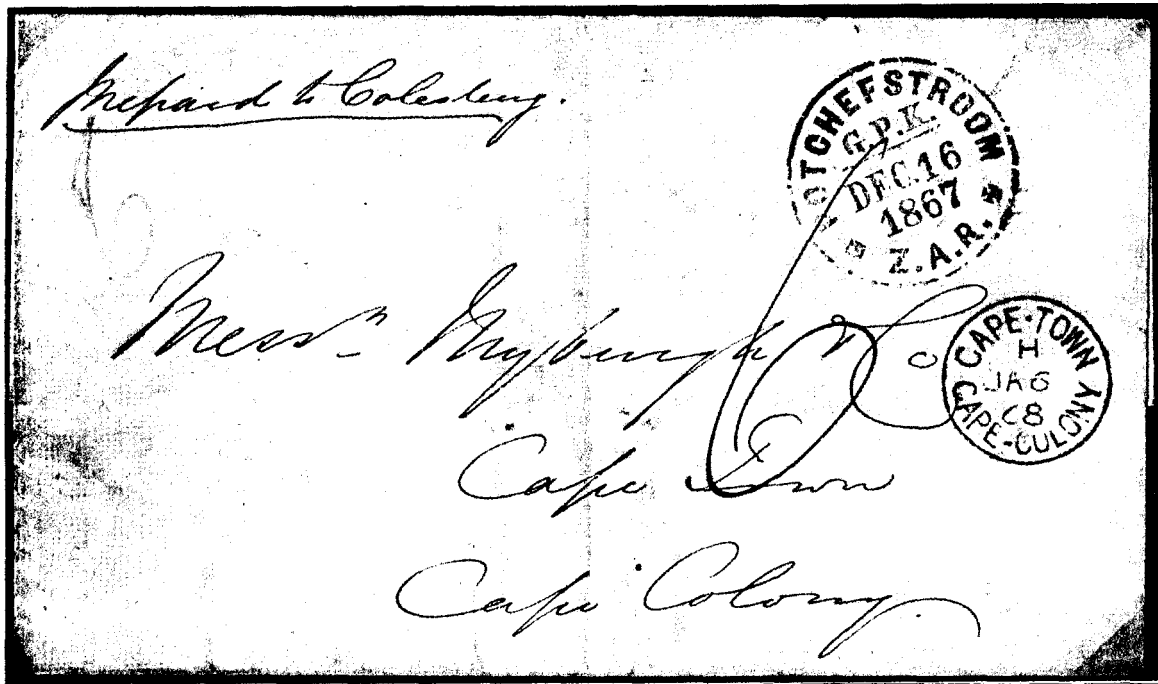 Prepaid to Colesberg.
POTCHEFSTROOM
G.P.K.
DEC.16
1867
Z.A.R.
Mess^rs Myburgh & Co
CAPE-TOWN
H
JA 6
68
CAPE-COLONY
6
Cape Town
Cape Colony.